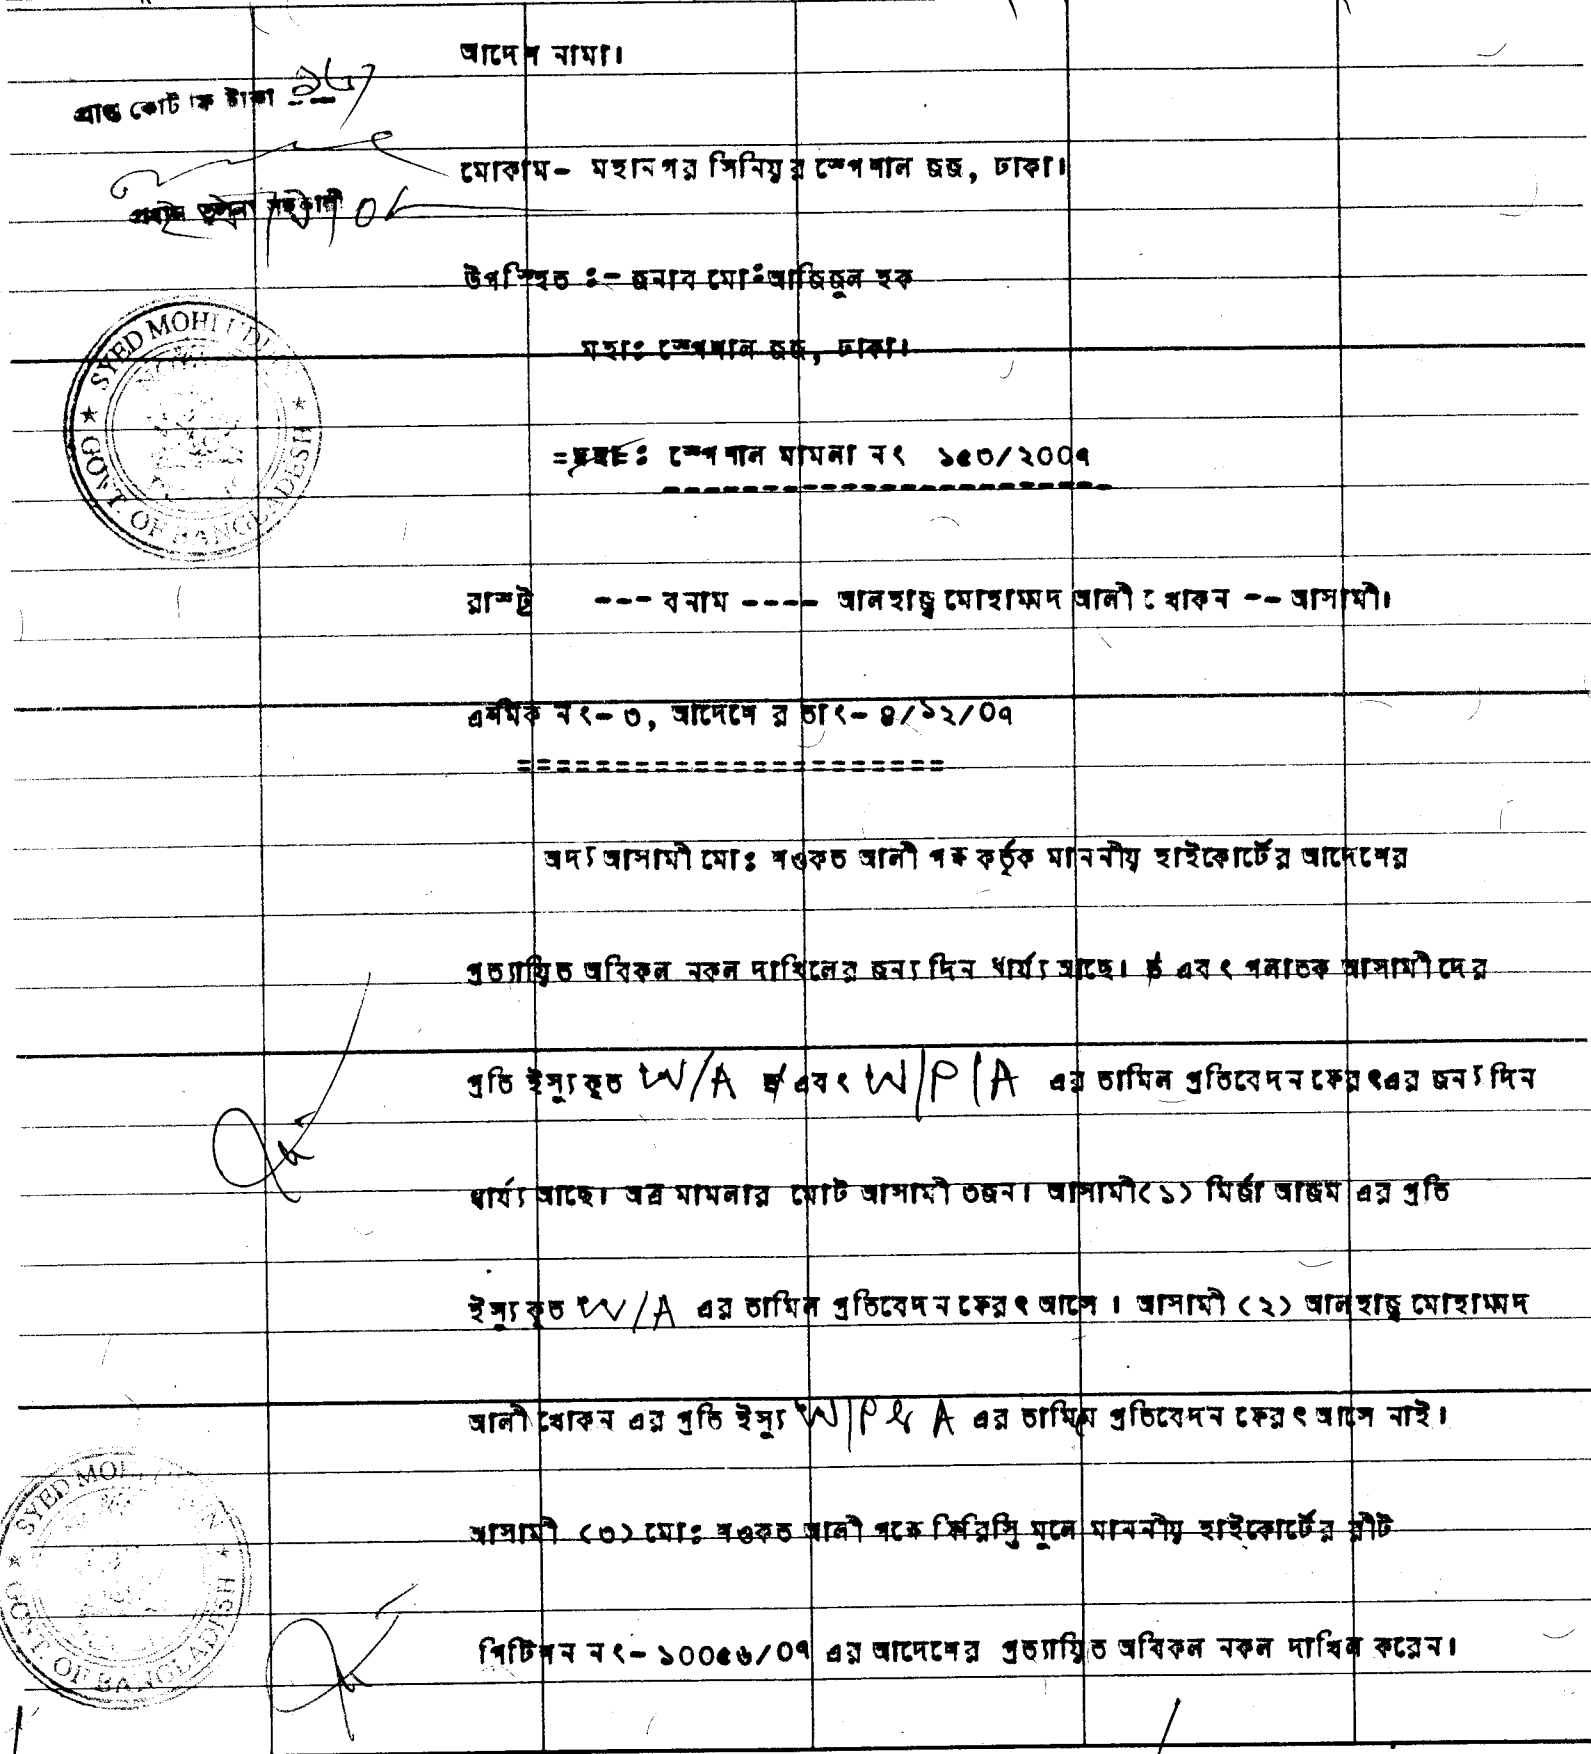 আদেশ নামা।
প্রাপ্ত কোর্ট ফি টাকা
মোকাম- মহানগর সিনিয়র স্পেশাল জজ, ঢাকা।
উপস্হিত ঃ- জনাব মোঃআজিজুল হক
মহাঃ স্পেশাল জজ, ঢাকা।
SYED MOHI UDDIN
NOTARY
★ GOVT. OF BANGLADESH ★
স্পেশাল মামলা নং ১৫৩/২০০৭
রাস্ট্র --- বনাম ---- আলহাজ্ব মোহাম্মদ আলী খোকন -- আসামী।
নং- ৩, আদেশের তাং- ৪/১২/০৭
=====================
অদ্য আসামী মোঃ শওকত আলী পক্ষ কর্তৃক মাননীয় হাইকোর্টের আদেশের
প্রত্যায়িত অবিকল নকল দাখিলের জন্য দিন ধার্য্য আছে। এবং পলাতক আসামী দের
প্রতি ইস্যুকৃত W/A এবং W/P/A এর তামিল প্রতিবেদন ফেরৎএর জন্য দিন
ধার্য্য আছে। অত্র মামলার মোট আসামী ৩জন। আসামী(১) মির্জা আজম এর প্রতি
ইস্যুকৃত W/A এর তামিল প্রতিবেদন ফেরৎ আসে । আসামী (২) আলহাজ্ব মোহাম্মদ
আলী খোকন এর প্রতি ইস্যু W/P & A এর তামিল প্রতিবেদন ফেরৎ আসে নাই।
আসামী (৩) মোঃ শওকত আলী পক্ষে ফিরিস্তি মূলে মাননীয় হাইকোর্টের রীট
SYED MOHI UDDIN
★ GOVT. OF BANGLADESH ★
পিটিশন নং- ১০০৫৬/০৭ এর আদেশের প্রত্যায়িত অবিকল নকল দাখিল করেন।